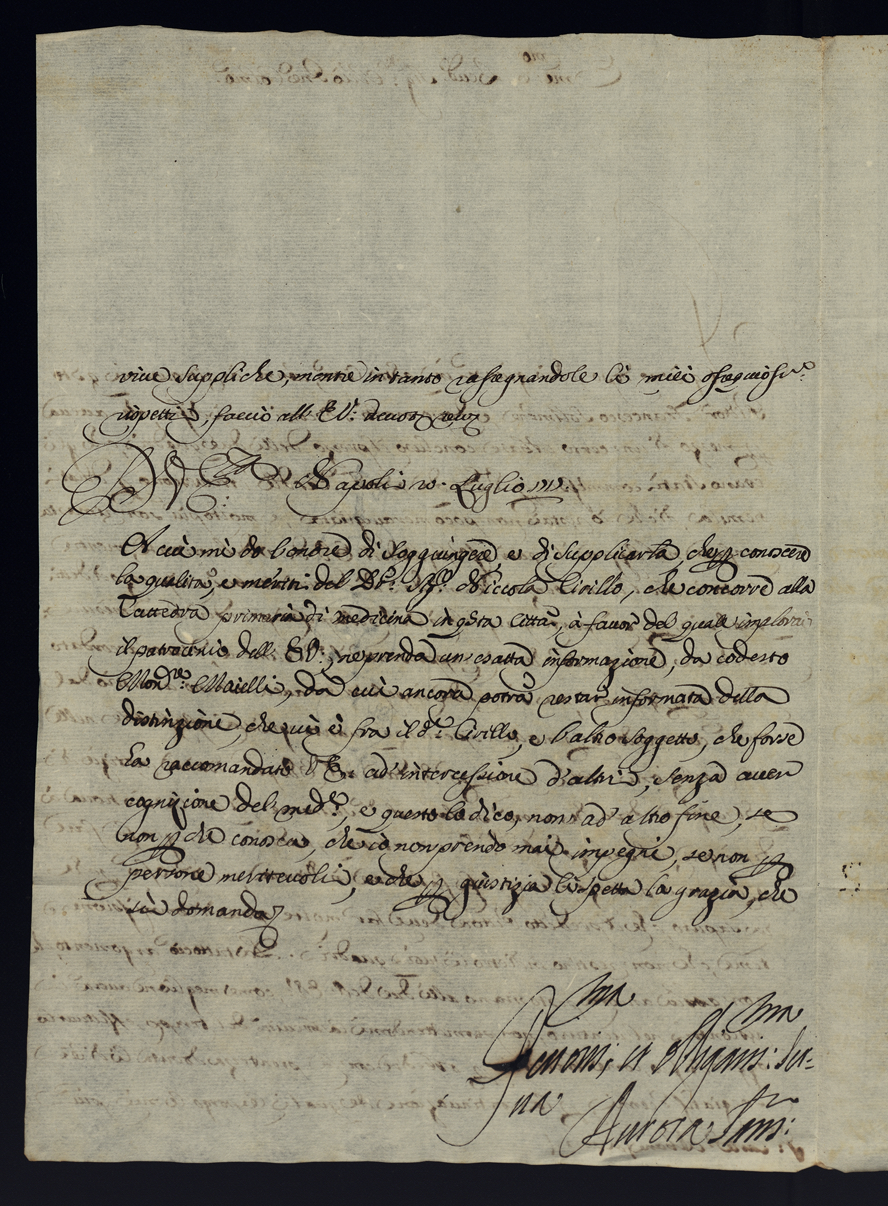 vive suppliche, mentre intanto rassegnandole li miei ossequiosi.mi
rispetti, faccio all' E.V. devot.
Di V. E.za Napoli Luglio
A cui mi do l'onore di soggiungere e di supplicarla, che p conoscere
le qualità, e meriti del Dr. Sigr. Niccola Cirillo, che concorre alla
Cattedra primaria di medicina in qsta Città, à favor del quale imploro
il patrocinio dell' E.V., ne prenda un' esatta informazione da codesto
Mondre. Maielli, da cui ancora potrà restar informata della
distinzione, che vi è fra il do. Cirillo, e l'altro soggetto, che forse
ha raccomandato V.E. ad' intercessione d'altri, senza aver
cognizione del medo., e questo lo dico, non ad' altro fine, se
non p che conosca, che io non prendo mai impegni, se non p
persone meritevoli, e che p giustizia li spetta la grazia, che
si domanda
Devotis.ma, et Obligatis.ma Ser=
va
Aurora San: